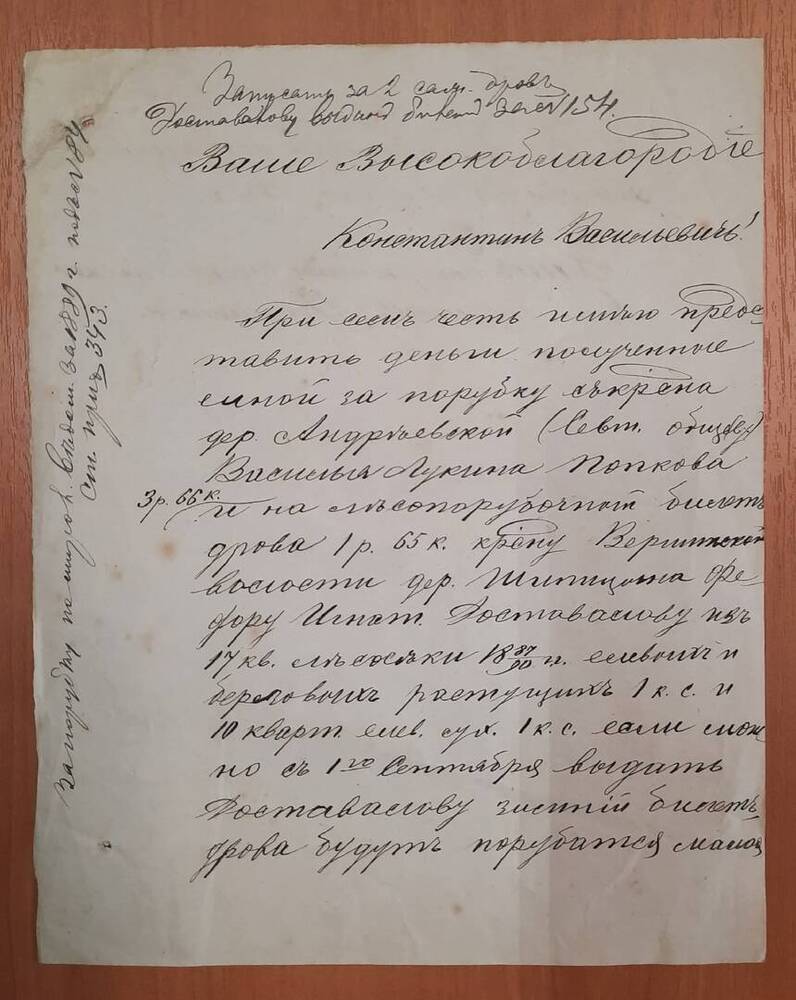 Записать за 2 саж. дровъ
Доставалову выданъ билетъ за № 154.
Ваше Высокоблагородіе
Константинъ Васильевичъ!
При семъ честь имѣю предс-
тавить деньги полученные
мной за порубку съ крѣна
дер. Андрѣевской (Севт. общ.)
Василья Лукина Попкова
3 р. 66 к.
и на лѣсопорубочный билетъ
дрова 1 р. 65 к. крѣну
волости дер. Шипицына Фе-
дору Игнат. Доставалову изъ
17 кв. лѣсосѣки 18 87/90 г. еловыхъ и
березовыхъ растущихъ 1 к. с. и
10 кварт. елов. сух. 1 к. с. если мож
но съ 1го Сентября выдать
Доставалову зимній билетъ
дрова будутъ порубатся
За порубку по вѣдом. за 1889 г. подъ № 84
ст. прих. 343.